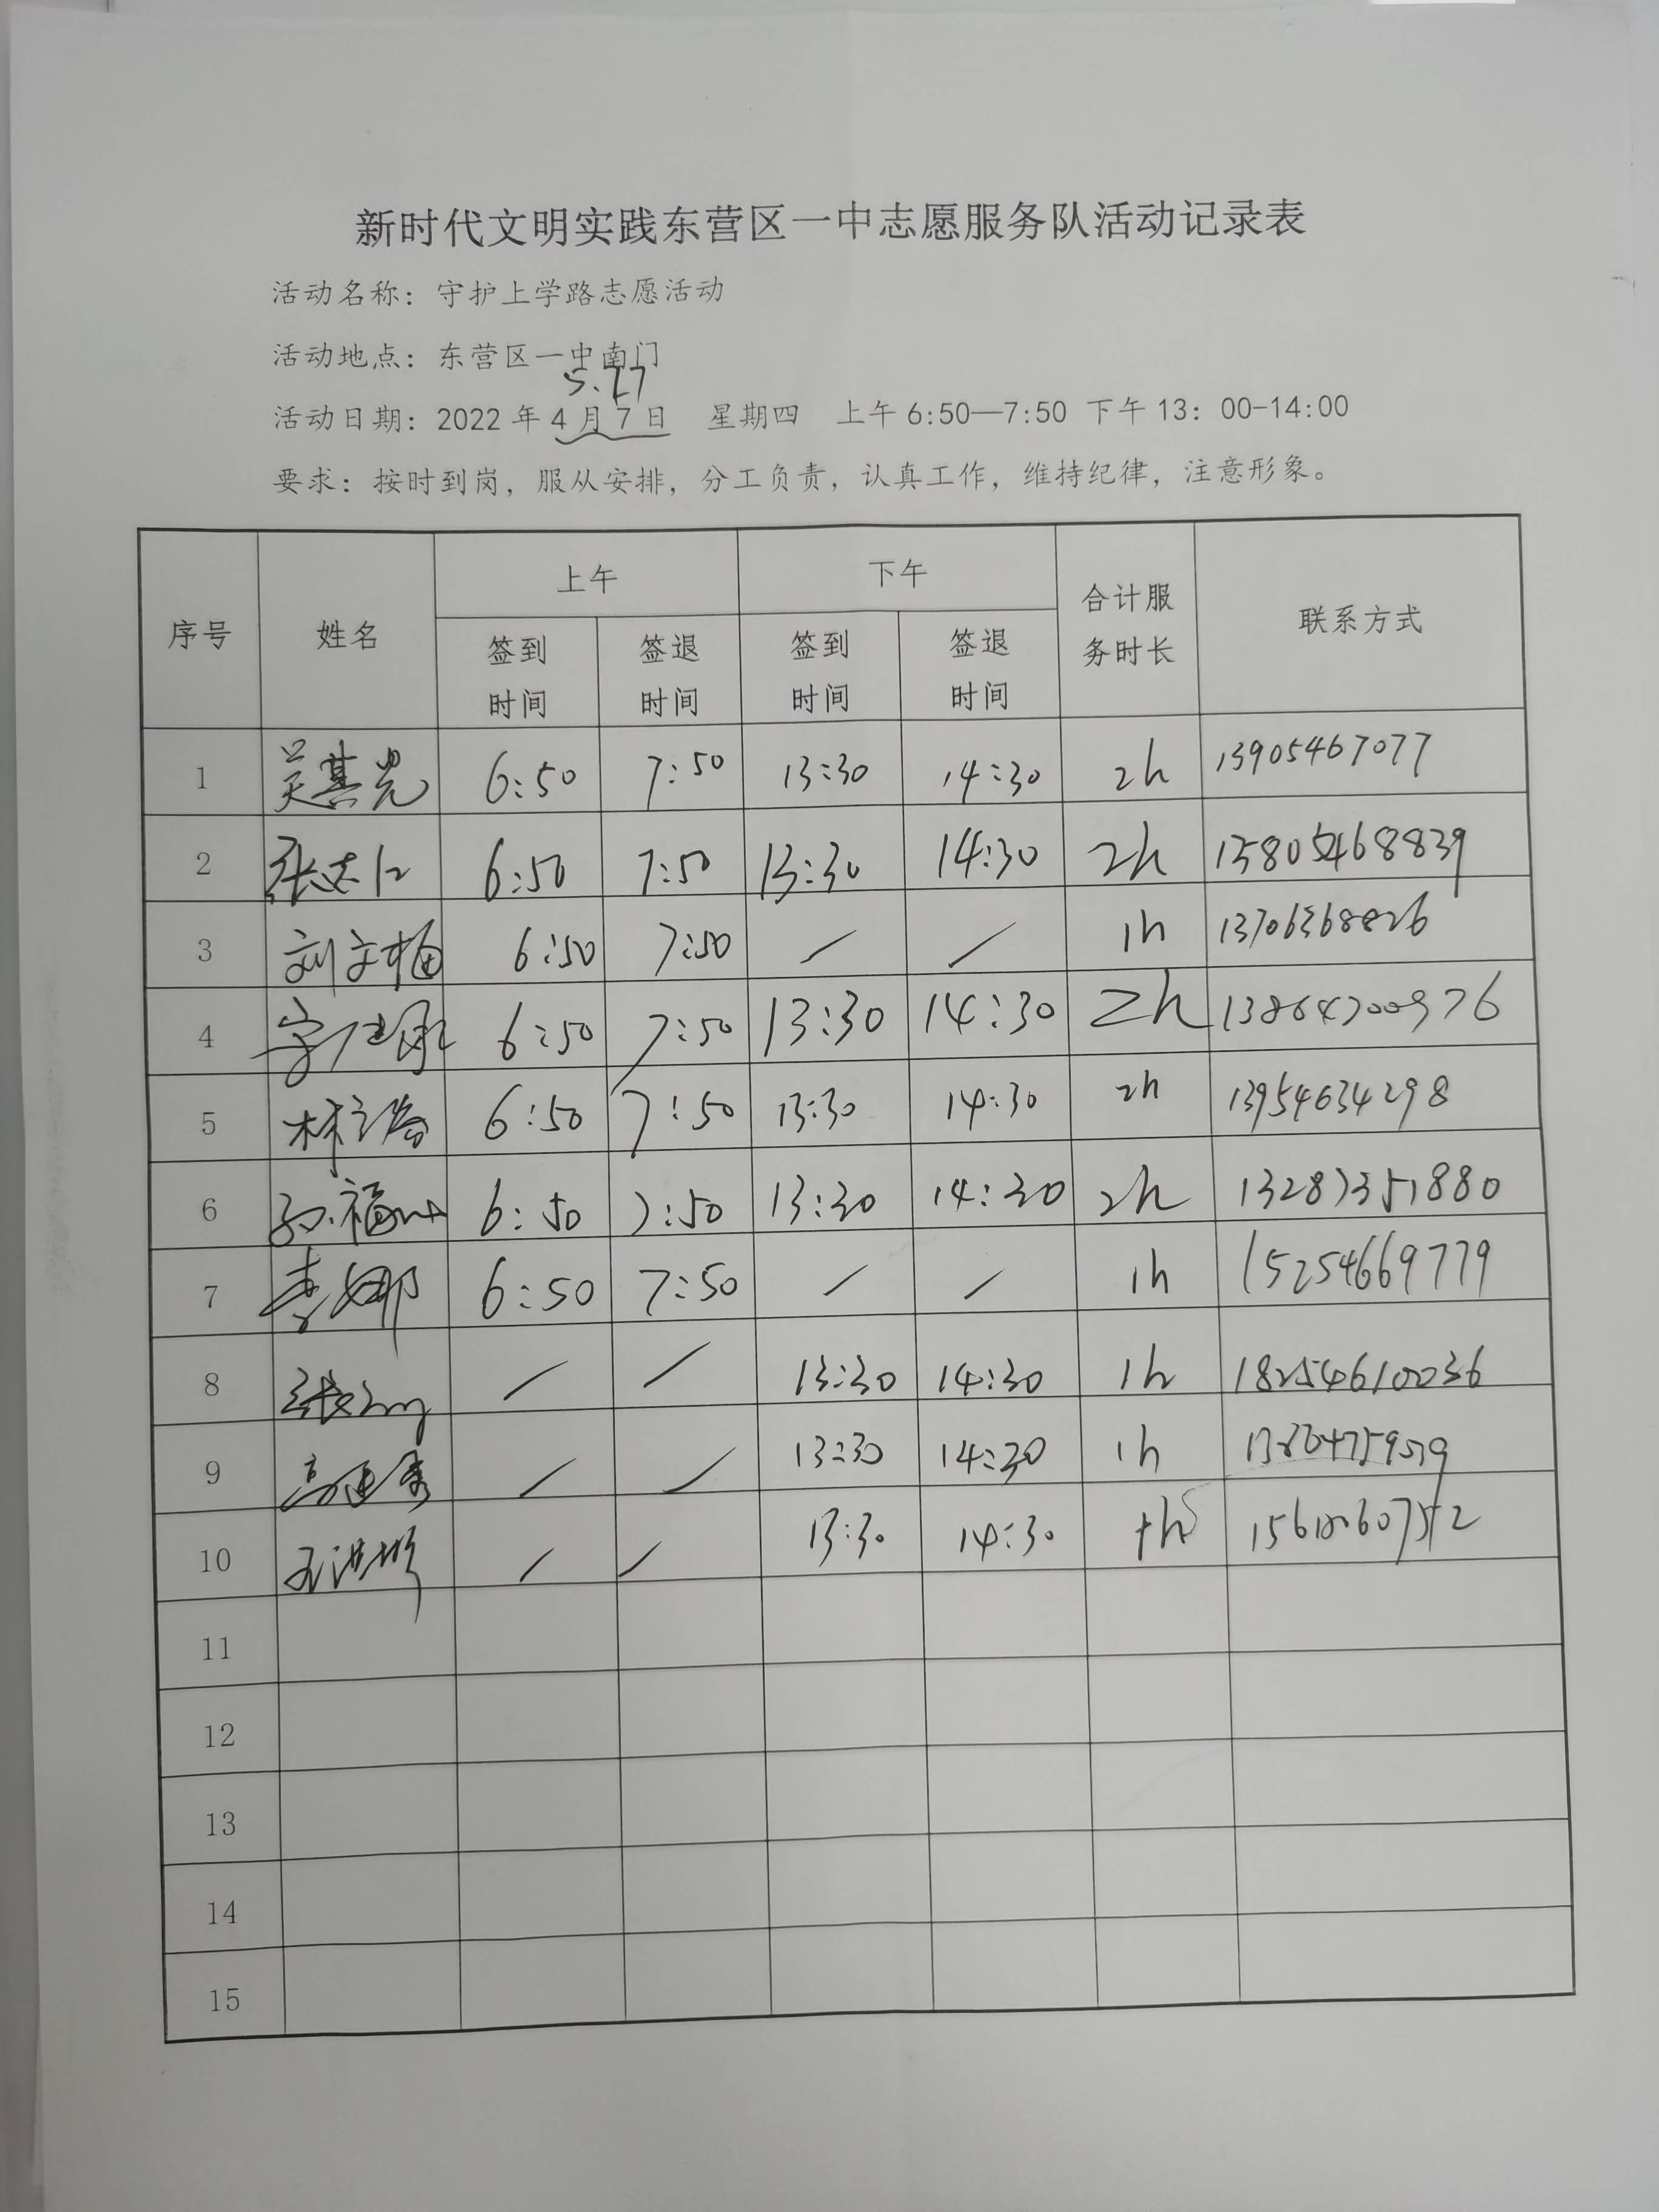 新时代文明实践东营区一中志愿服务队活动记录表
活动名称：守护上学路志愿活动
活动地点：东营区一中南门
5.27
活动日期：2022年4月7日 星期四 上午6:50—7:50 下午13：00-14:00
要求：按时到岗，服从安排，分工负责，认真工作，维持纪律，注意形象。
序号 姓名 上午 下午 合计服务时长 联系方式
签到时间 签退时间 签到时间 签退时间
1 吴其光 6:50 7:50 13:30 14:30 2h 13905467077
2 6:50 7:50 13:30 14:30 2h 13805468839
3 刘文梅 6:50 7:50 / / 1h 13706368826
4 6:50 7:50 13:30 14:30 2h 13864700976
5 6:50 7:50 13:30 14:30 2h 13954634298
6 6:50 7:50 13:30 14:30 2h 13287351880
7 李娜 6:50 7:50 / / 1h 15254669779
8 / / 13:30 14:30 1h 18254610036
9 / / 13:30 14:30 1h
10 / / 13:30 14:30 1h
11
12
13
14
15